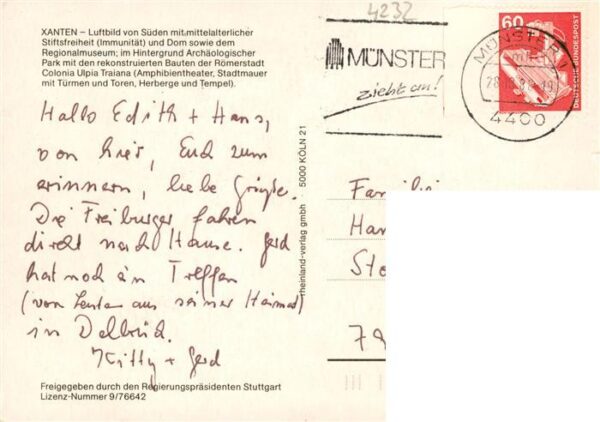 XANTEN – Luftbild von Süden mit mittelalterlicher
Stiftsfreiheit (Immunität) und Dom sowie dem
Regionalmuseum; im Hintergrund Archäologischer
Park mit den rekonstruierten Bauten der Römerstadt
Colonia Ulpia Traiana (Amphibientheater, Stadtmauer
mit Türmen und Toren, Herberge und Tempel).
Hallo Edith + Hans,
von hier, Euch zum
erinnern, liebe Grüße.
Die Freiburger fahren
direkt nach Hause. Gerd
hat noch ein Treffen
(von Leuten aus seiner Heimat)
in Delbrück.
Kitty + Gerd
Freigegeben durch den Regierungspräsidenten Stuttgart
Lizenz-Nummer 9/76642
rheinland-verlag gmbh · 5000 KÖLN 21
4232
MÜNSTER
zieht an!
MÜNSTER
4400
60
DEUTSCHE BUNDESPOST
Familie
Han
Sto
79